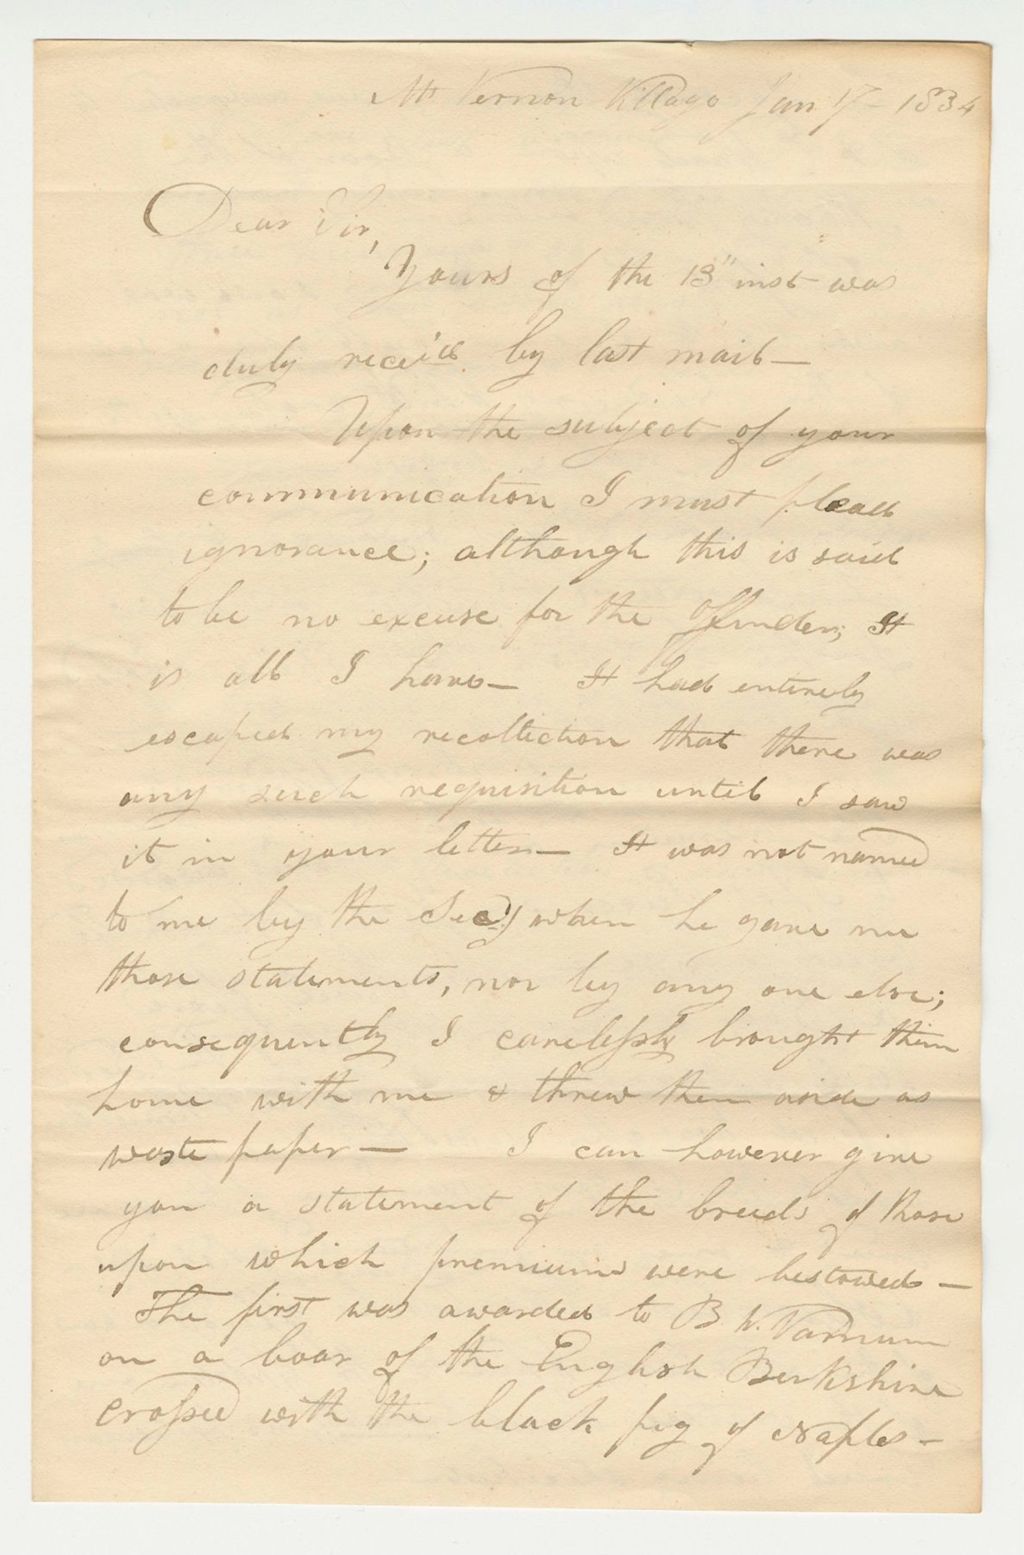 Mt Vernon Village Jan 17 - 1834
Dear Sir,
Yours of the 13" inst was
duly recei'd by last mail—
Upon the subject of your
communication I must plead
ignorance; although this is said
to be no excuse for the offender; It
is all I have— It had entirely
escaped my recollection that there was
any such requisition until I saw
it in your letter— It was not named
to me by the Secy when he gave me
those statements, nor by any one else;
consequently I carelessly brought them
home with me & threw them aside as
waste paper— I can however give
you a statement of the breeds of those
upon which premiums were bestowed—
The first was awarded to B W. Varnum
on a boar of the English Berkshire
crossed with the black pig of Naples—